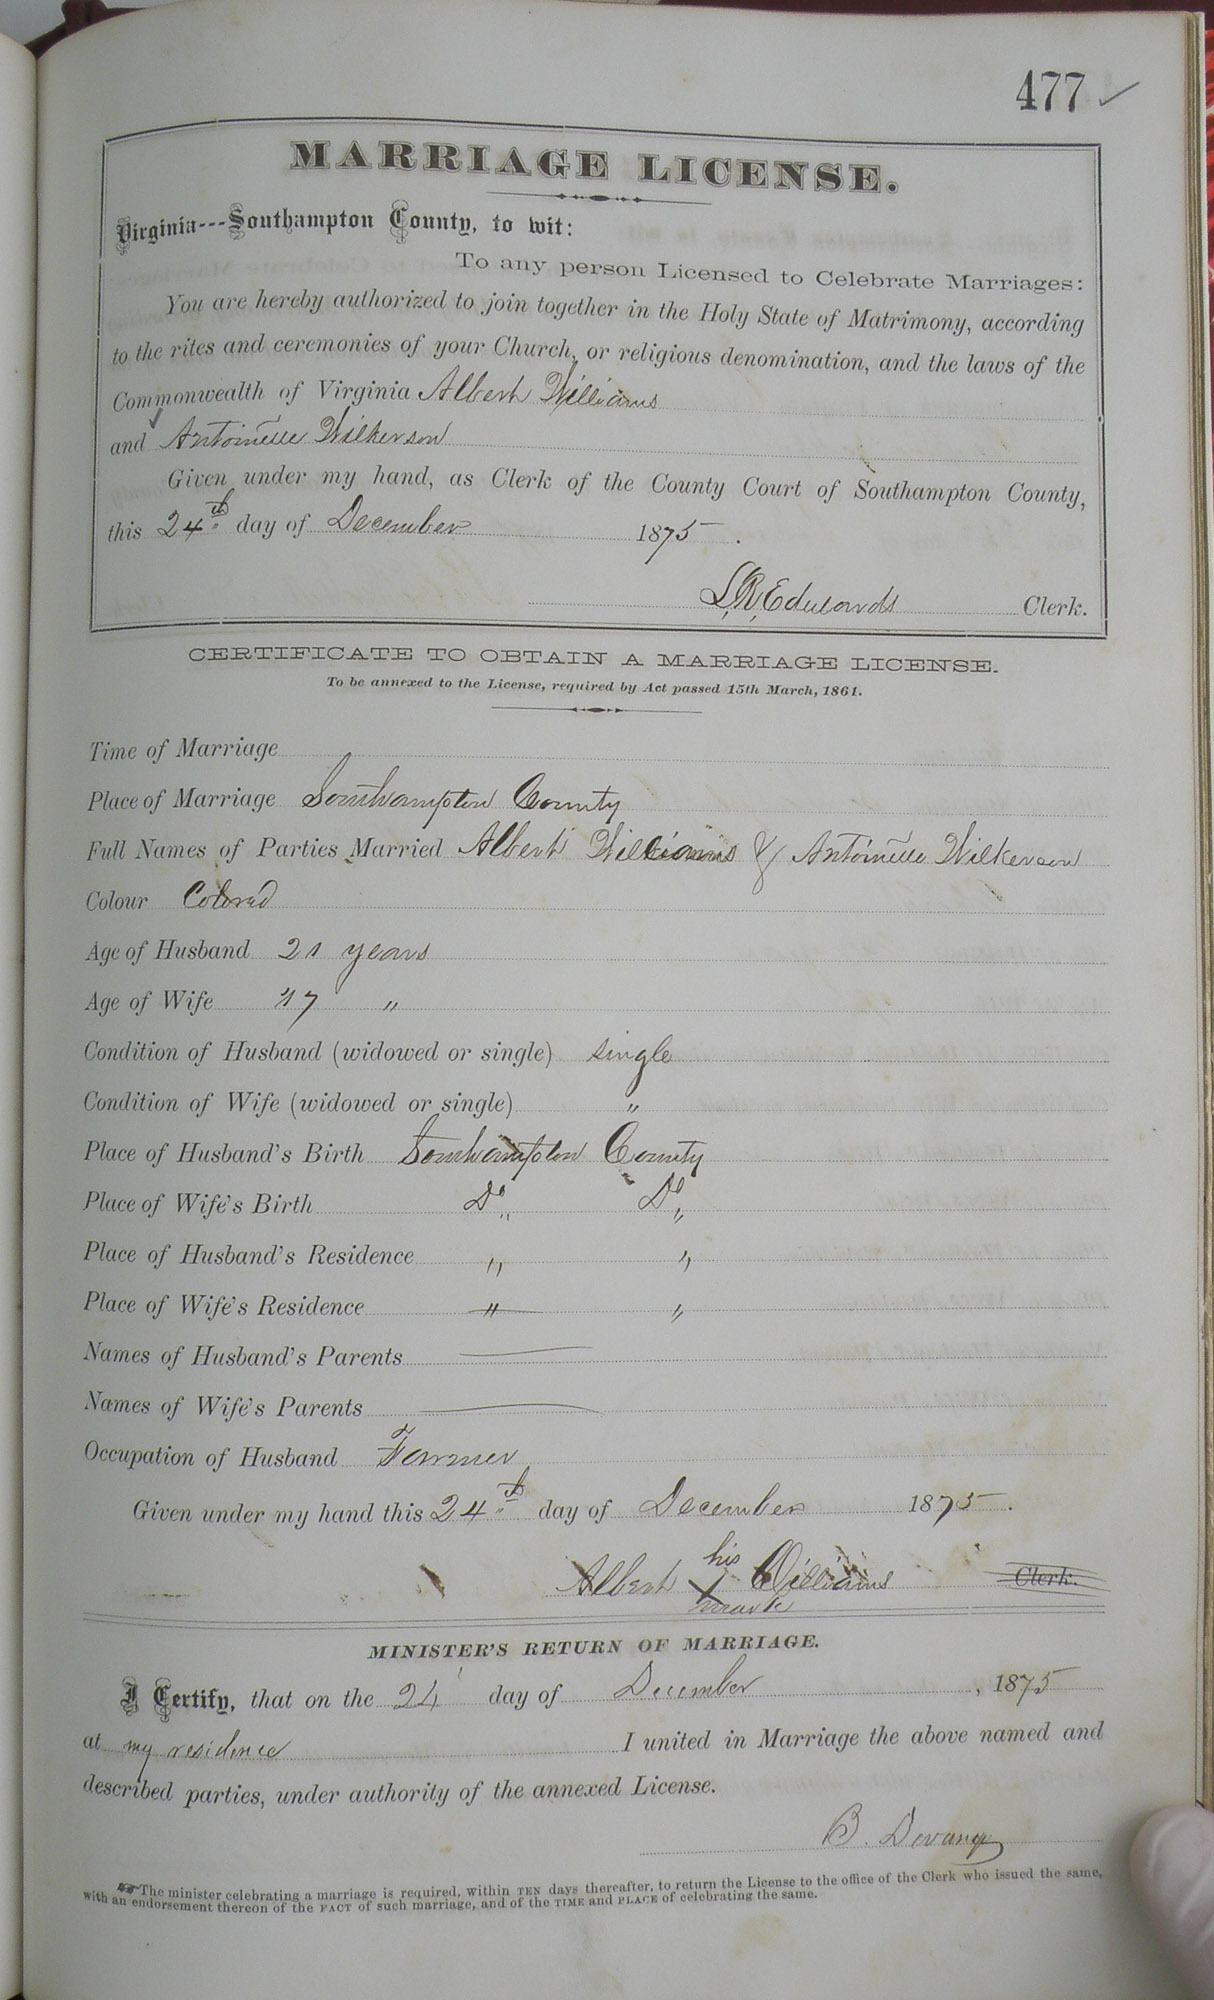 477 ✓
MARRIAGE LICENSE.
Virginia---Southampton County, to wit:
To any person Licensed to Celebrate Marriages:
You are hereby authorized to join together in the Holy State of Matrimony, according
to the rites and ceremonies of your Church, or religious denomination, and the laws of the
Commonwealth of Virginia Albert Williams
and Antoinette Wilkerson
Given under my hand, as Clerk of the County Court of Southampton County,
this 24th day of December 1875.
L.R. Edwards Clerk.
CERTIFICATE TO OBTAIN A MARRIAGE LICENSE.
To be annexed to the License, required by Act passed 15th March, 1861.
Time of Marriage
Place of Marriage Southampton County
Full Names of Parties Married Albert Williams & Antoinette Wilkerson
Colour Colored
Age of Husband 21 years
Age of Wife 17 "
Condition of Husband (widowed or single) single
Condition of Wife (widowed or single) "
Place of Husband's Birth Southampton County
Place of Wife's Birth Do. Do.
Place of Husband's Residence " "
Place of Wife's Residence " "
Names of Husband's Parents —
Names of Wife's Parents —
Occupation of Husband Farmer
Given under my hand this 24th day of December 1875.
Albert his X mark Williams Clerk.
MINISTER'S RETURN OF MARRIAGE.
I Certify, that on the 24 day of December, 1875
at my residence I united in Marriage the above named and
described parties, under authority of the annexed License.
B.
The minister celebrating a marriage is required, within TEN days thereafter, to return the License to the office of the Clerk who issued the same,
with an endorsement thereon of the FACT of such marriage, and of the TIME and PLACE of celebrating the same.